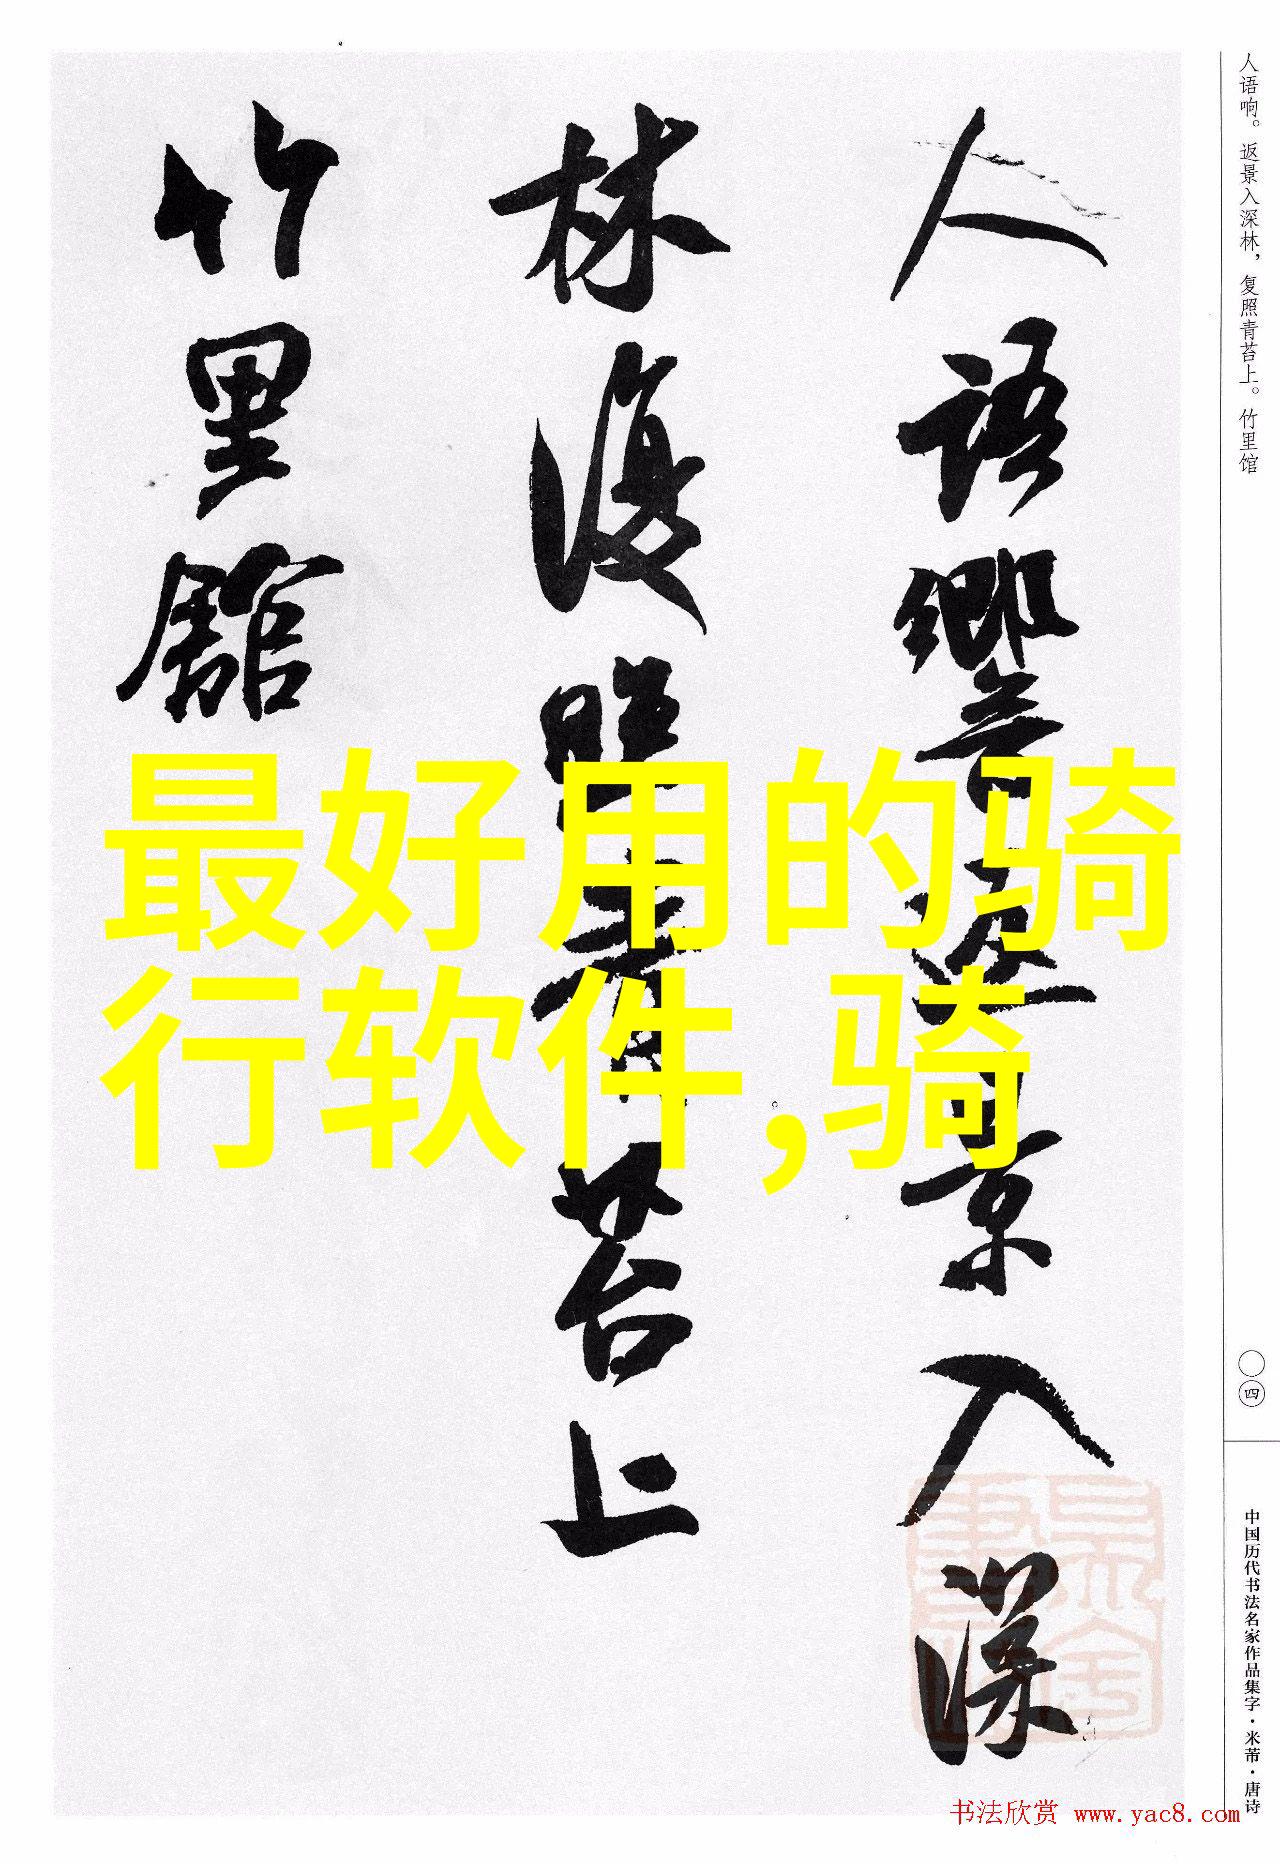 人語響返景入深
林復照青苔上
竹里館
最好用的骑
行软件,骑
人语响。返景入深林，复照青苔上。竹里馆
〇四
中国历代书法名家作品集字·米芾·唐诗
书法欣赏 www.yac8.com